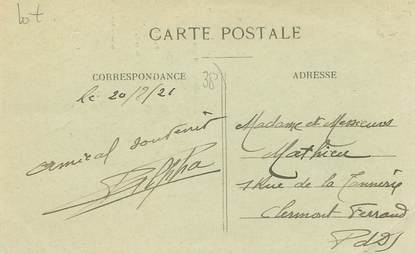 lot.
CARTE POSTALE
CORRESPONDANCE
38
ADRESSE
le 20/8/21
amical souvenir
Madame et Messieurs
Mathieu
Rue de la Tannerie
Clermont-Ferrand
PdD